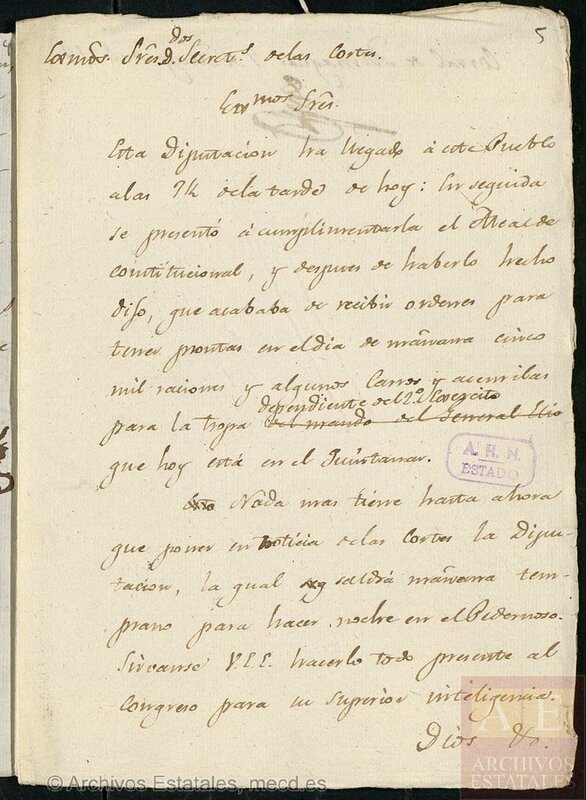 5
Exmos. Sres. D.dos Secrets. de las Cortes.
Exmos Sres.
Esta Diputacion ha llegado á este Pueblo
a las 7½ de la tarde de hoy: En seguida
se presentó á cumplimentarla el Alcalde
constitucional, y despues de haberlo hecho
dijo, que acababa de recibir ordenes para
tener prontas en el dia de mañana cinco
mil raciones y algunos Carros y acemilas
dependiente del 2º Exercito
para la tropa del mando del General Elio
que hoy está en el Quintanar.
Nada mas tiene hasta ahora
que poner en noticia de las Cortes la Dipu-
tacion, la qual saldrá mañana tem-
prano para hacer noche en el Pedernoso.
Sirvanse V.E.E. hacerlo todo presente al
Congreso para su superior inteligencia.
Dios &c.
A. H. N.
ESTADO
AE
ARCHIVOS
ESTATALES
© Archivos Estatales, mecd.es